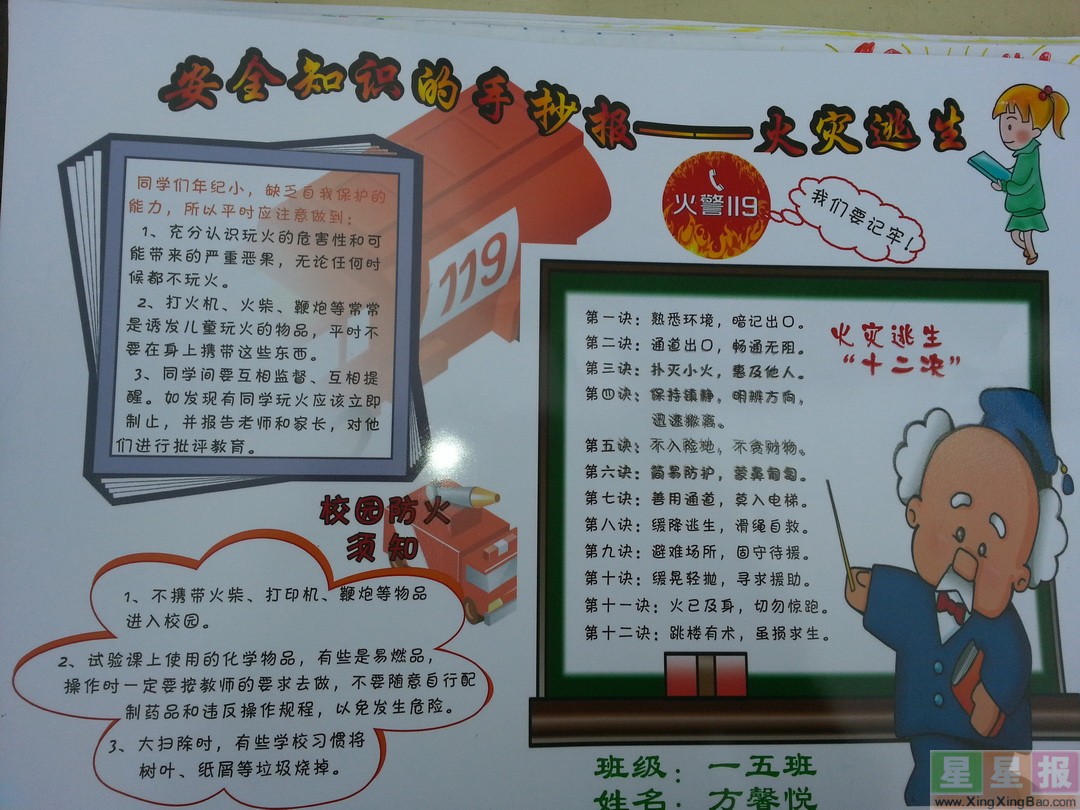 安全知识的手抄报——火灾逃生
火警119
我们要记牢!
119
同学们年纪小，缺乏自我保护的
能力，所以平时应注意做到：
1、充分认识玩火的危害性和可
能带来的严重恶果，无论任何时
候都不玩火。
2、打火机、火柴、鞭炮等常常
是诱发儿童玩火的物品，平时不
要在身上携带这些东西。
3、同学间要互相监督、互相提
醒。如发现有同学玩火应该立即
制止，并报告老师和家长，对他
们进行批评教育。
校园防火
须知
1、不携带火柴、打印机、鞭炮等物品
进入校园。
2、试验课上使用的化学物品，有些是易燃品，
操作时一定要按教师的要求去做，不要随意自行配
制药品和违反操作规程，以免发生危险。
3、大扫除时，有些学校习惯将
树叶、纸屑等垃圾烧掉。
火灾逃生
“十二决”
第一诀：熟悉环境，暗记出口。
第二诀：通道出口，畅通无阻。
第三诀：扑灭小火，惠及他人。
第四诀：保持镇静，明辨方向，
迅速撤离。
第五诀：不入险地，不贪财物。
第六诀：简易防护，蒙鼻匍匐。
第七诀：善用通道，莫入电梯。
第八诀：缓降逃生，滑绳自救。
第九诀：避难场所，固守待援。
第十诀：缓晃轻抛，寻求援助。
第十一诀：火已及身，切勿惊跑。
第十二诀：跳楼有术，虽损求生。
班级：一五班
姓名：方馨悦
星星报
www.XingXingBao.com